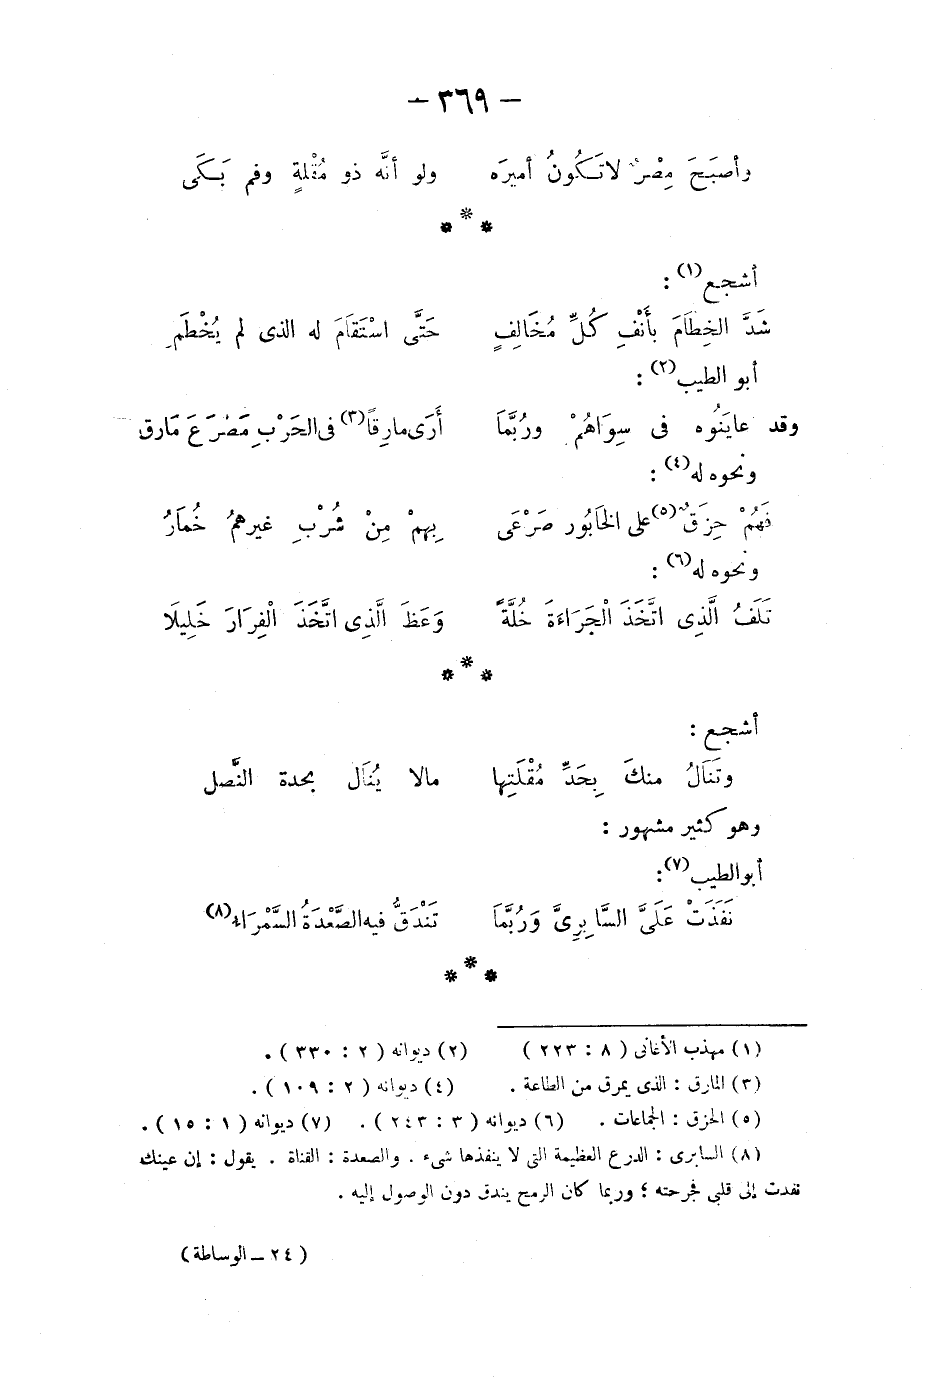 — ٣٦٩ —
وأصبَحَ مِصْرٌ لا تَكُونُ أميرَه ولو أنَّه ذو مُقْلةٍ وفم بَكَى
* * *
أشجع (١) :
شَدَّ الخِطَامَ بأَنْفِ كُلِّ مُخَالِفٍ حَتَّى اسْتَقَامَ له الذى لم يُخْطَمِ
أبو الطيب (٢) :
وقد عايَنُوه فى سِوَاهُمْ ورُبَّمَا أَرَى مارِقاً (٣) فى الحَرْبِ مَصْرَعَ مَارق
ونحوه له (٤) :
فَهُمْ حِزَقٌ (٥) على الخَابُور صَرْعَى بِهِمْ مِنْ شُرْبِ غيرهمُ خُمَارُ
ونحوه له (٦) :
تَلَفُ الَّذِى اتَّخَذَ الْجَرَاءَةَ خُلَّةً وَعَظَ الَّذِى اتَّخَذَ الْفِرَارَ خَلِيلَا
* * *
أشجع :
وتَنَالُ منكَ بِحَدِّ مُقْلَتِها مالا يُنَال بحدة النَّصل
وهو كثير مشهور :
أبو الطيب (٧) :
نَفَذَتْ عَلَىَّ السَّابِرِىَّ وَرُبَّمَا تَنْدَقُّ فيه الصَّعْدَةُ السَّمْرَاء (٨)
* * *
(١) مهذب الأغانى ( ٨ : ٢٢٣ ) (٢) ديوانه ( ٢ : ٣٣٠ ) .
(٣) المارق : الذى يمرق من الطاعة . (٤) ديوانه ( ٢ : ١٠٩ ) .
(٥) الحزق : الجماعات . (٦) ديوانه ( ٣ : ٢٤٣ ) . (٧) ديوانه ( ١ : ١٥ ) .
(٨) السابرى : الدرع العظيمة التى لا ينفذها شىء . والصعدة : القناة . يقول : إن عينك
نفدت إلى قلبى فجرحته ؛ وربما كان الرمح يندق دون الوصول إليه .
( ٢٤ — الوساطة )